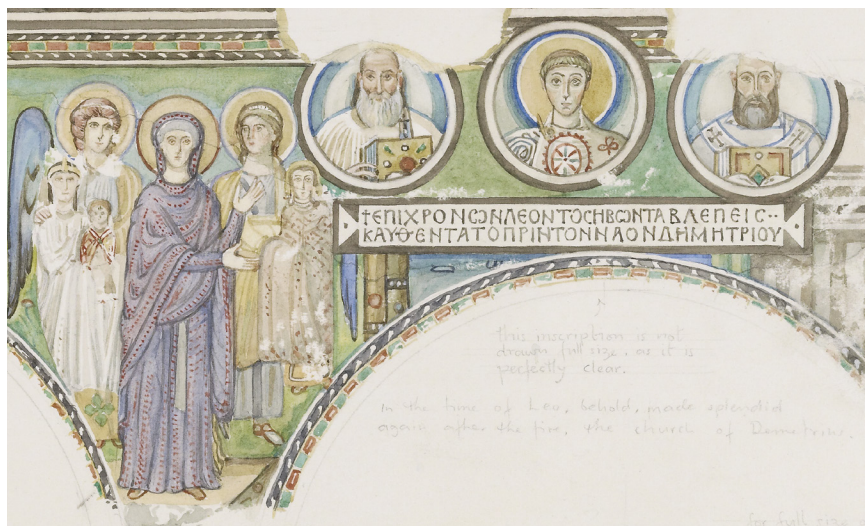 +ΕΠΙΧΡΟΝѠΝΛΕΟΝΤΟCΗΒѠΝΤΑΒΛΕΠΕΙC··
ΚΑΥΘΕΝΤΑΤΟΠΡΙΝΤΟΝΝΑΟΝΔΗΜΗΤΡΙΟΥ
This inscription is not
drawn full size, as it is
perfectly clear.
In the time of Leo, behold, made splendid
again after the fire, the church of Demetrius.
for full